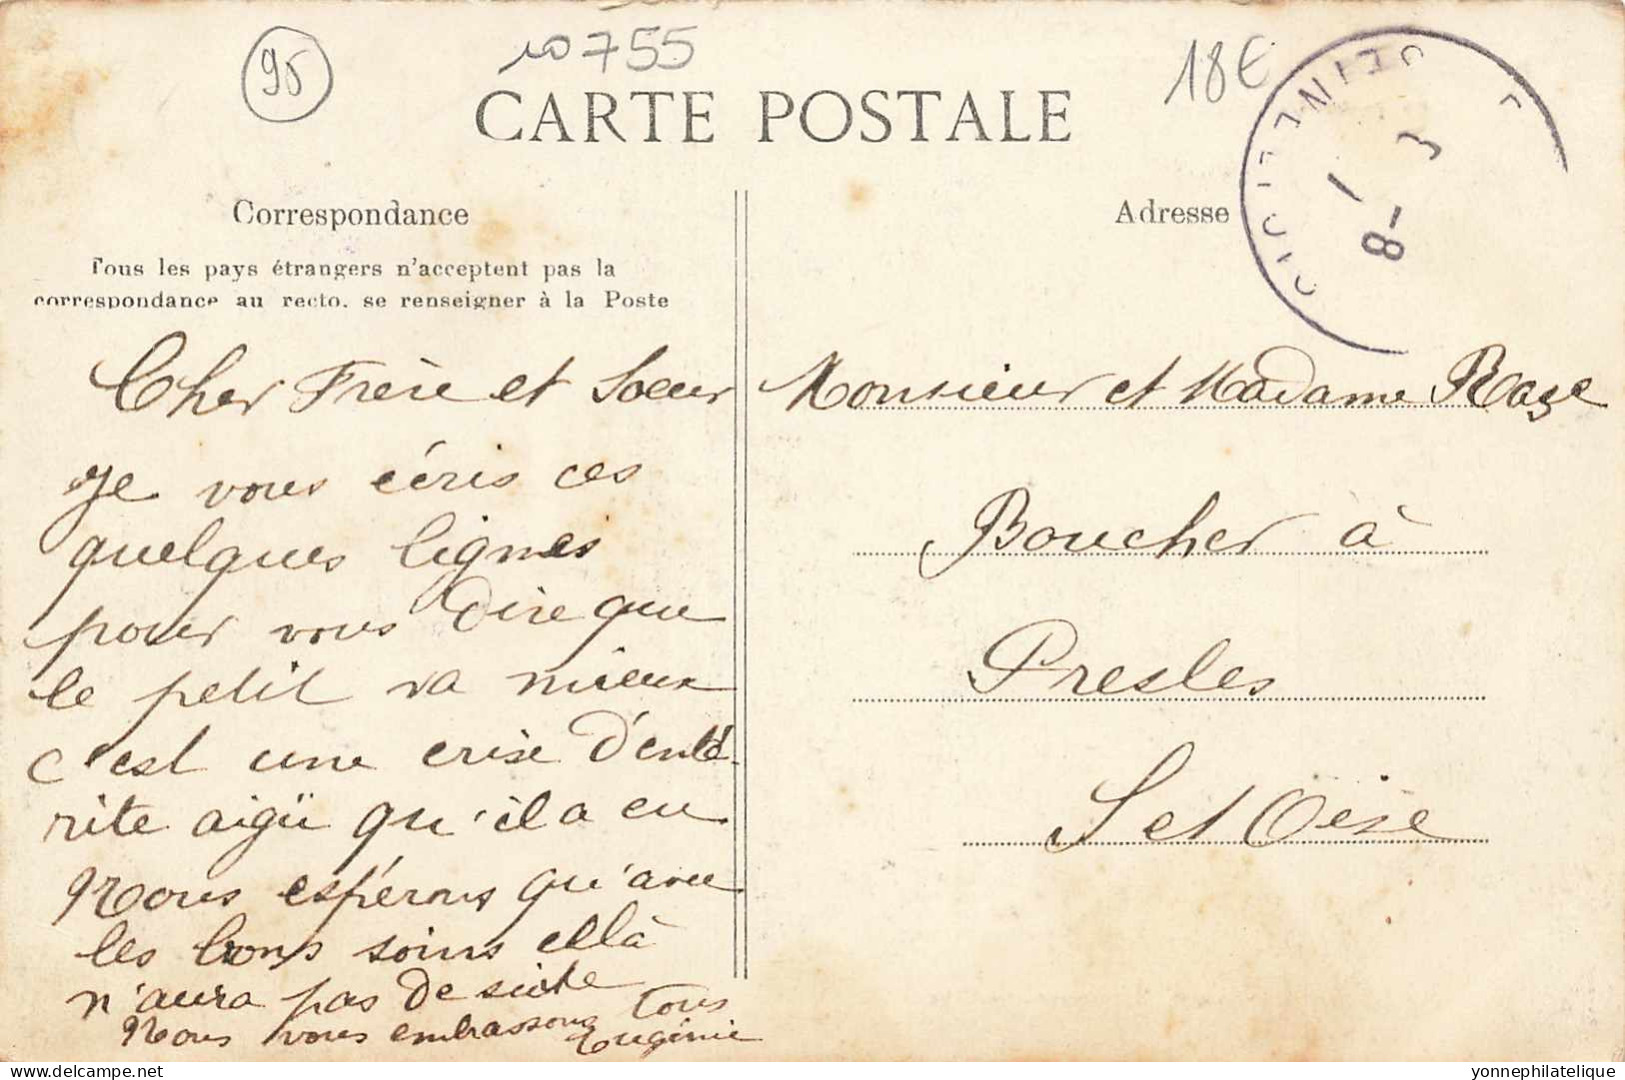 95
10755
18€
CARTE POSTALE
Correspondance
Tous les pays étrangers n'acceptent pas la
correspondance au recto. se renseigner à la Poste
Cher Frère et Soeur
Je vous écris ces
quelques lignes
pour vous dire que
le petit va mieux
c'est une crise d'enté-
rite aigüi qu'il a eu
Nous espérons qu'avec
les bons soins ellà
n'aura pas de suite
Nous vous embrassons Tous
Eugénie
Adresse
8-3
Monsieur et Madame Raze
Boucher à
Presles
S et Oise
yonnephilatelique